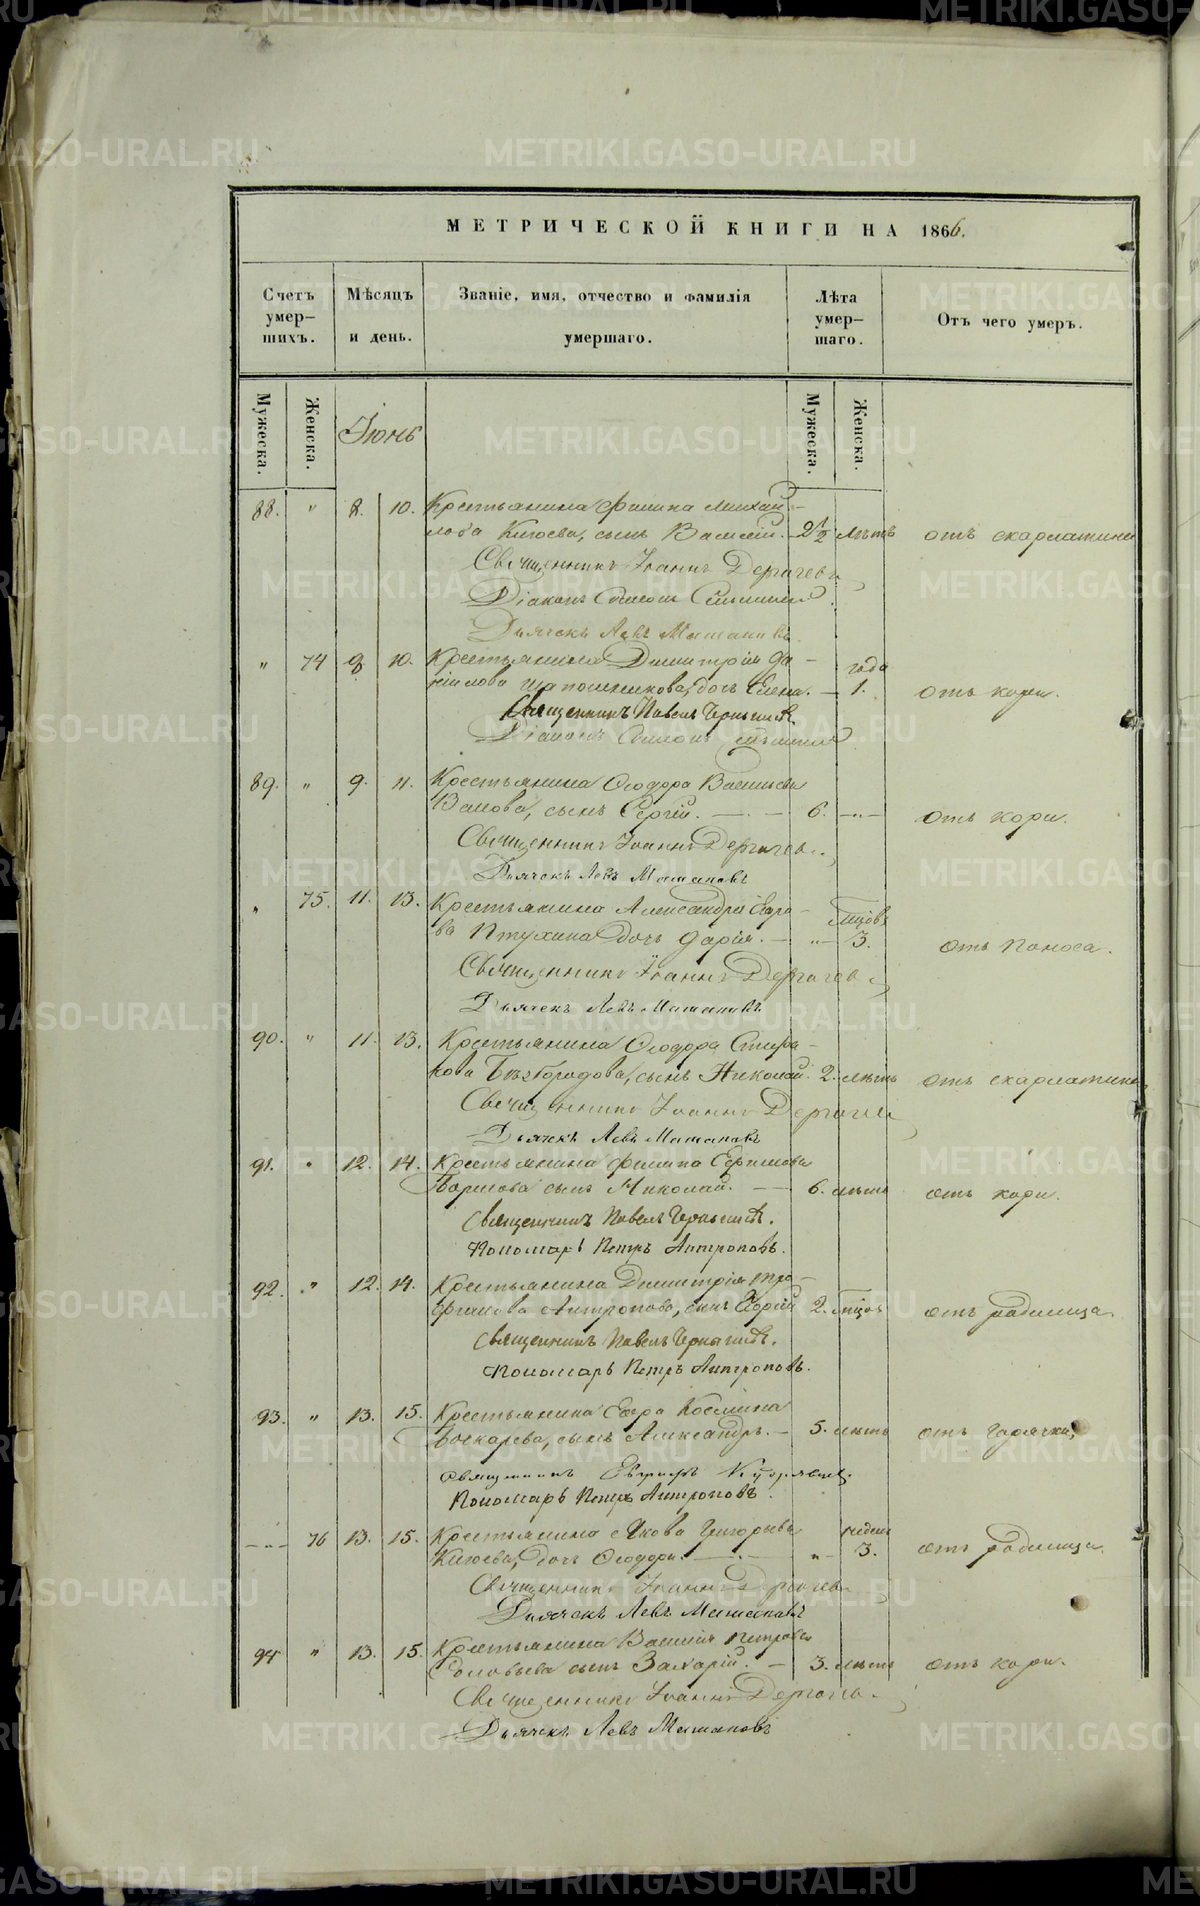 МЕТРИЧЕСКОЙ КНИГИ НА 1866.
Счетъ умер—шихъ.
Мѣсяцъ и день.
Званіе, имя, отчество и фамилія умершаго.
Лѣта умер—шаго.
Отъ чего умеръ.
Мужеска. Женска. Мужеска. Женска.
Іюнь
88. " 8. 10. Крестьянина Филипа Михай-
лова Клюева, сынъ Василій. 2 1/2 лѣтъ отъ скарлатины
Священникъ Іоаннъ Дергачевъ
Діаконъ Симеонъ
Дьячекъ Левъ Матановъ.
" 74 8. 10. Крестьянина Димитрія Да-
ніилова Шапошникова, дочь Елена. — года 1. отъ кори.
Священникъ Павелъ Чернышевъ.
Діаконъ Симеонъ
89. " 9. 11. Крестьянина Ѳеодора Васильева
сынъ Сергій. — 6. —"— отъ кори.
Священникъ Іоаннъ Дергачевъ.
Дьячекъ Левъ Матановъ
" 75. 11. 13. Крестьянина Александра Егоро-
ва Птухина дочь Дарія. — "— мѣсяцовъ 3. отъ поноса.
Священникъ Іоаннъ Дергачевъ
Дьячекъ Левъ Матановъ
90. " 11. 13. Крестьянина Ѳеодора Спири-
Безбородова, сынъ Николай. 2. лѣтъ отъ скарлатины
Священникъ Іоаннъ Дергачевъ
Дьячекъ Левъ Матановъ
91. " 12. 14. Крестьянина Филипа Ефимова
сынъ Николай. — 6. лѣтъ отъ кори.
Священникъ Павелъ Чернышевъ.
Пономарь Петръ Антроповъ.
92. " 12. 14. Крестьянина Димитрія Тро-
фимова Антропова, сынъ 2. мѣсяцовъ отъ родимца.
Священникъ Павелъ Чернышевъ.
Пономарь Петръ Антроповъ.
93. " 13. 15. Крестьянина Егора Космина
сынъ Александръ. — 5. лѣтъ отъ горячки,
Священникъ
Пономарь Петръ Антроповъ.
—"— 76 13. 15. Крестьянина Якова Григорьева
Клюева, дочь Ѳеодора. — "— недель 3. отъ родимца.
Священникъ Іоаннъ Дергачевъ
Дьячекъ Левъ Матановъ
94 " 13. 15. Крестьянина Василія Петрова
Соловьева сынъ Захарій. — 3. лѣтъ отъ кори.
Священникъ Іоаннъ Дергачевъ.
Дьячекъ Левъ Матановъ
METRIKI.GASO-URAL.RU